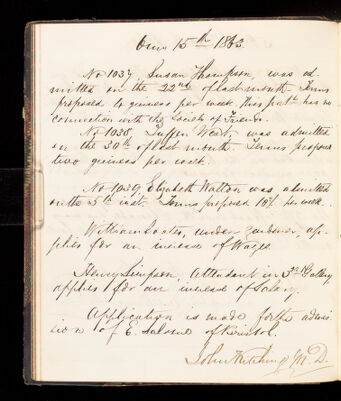 15th 1863.
No 1037, Susan Thompson, was ad-
mitted on the 22nd of last month. Terms
proposed 4 guineas per week. This patt. has no
connection with the Society of Friends.
No 1038, Tuffen West, was admitted
on the 30th of last month. Terms proposed
two guineas per week.
No 1039, Elizabeth Watson was admitted
on the 5th inst. Terms proposed 18/- per week.
William Coates, under gardener, ap-
plies for an increase of Wages.
Henry Simpson, Attendant in 3rd Gallery
applies for an increase of Salary.
Application is made for the admis-
sion of E. of Bristol.
John Kitching M.D.